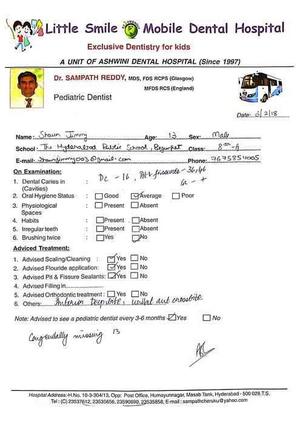 Little Smile Mobile Dental Hospital
Exclusive Dentistry for kids
A UNIT OF ASHWINI DENTAL HOSPITAL (Since 1997)
Dr. SAMPATH REDDY, MDS, FDS RCPS (Glasgow)
MFDS RCS (England)
Pediatric Dentist
Date: 6/2/18
Name: Shawn Jimmy Age: 13 Sex: Male
School: The Hyderabad Public School, Begumpet Class: 8th-
E-mail: Phone:
On Examination:
1. Dental Caries in (Cavities) : Dc - 16, Pit fissures - 36,46
2. Oral Hygiene Status : Good Average Poor
3. Physiological Spaces : Present Absent
4. Habits : Present Absent
5. Irregular teeth : Present Absent
6. Brushing twice : Yes No
Adviced Treatment:
1. Advised Scaling/Cleaning : Yes No
2. Advised Flouride application: Yes No
3. Advised Pit & Fissure Sealants: Yes No
4. Advised Filling in
5. Advised Orthodontic treatment : Yes No
6. Others: Anterior deep bite, and crossbite
Note: Advised to see a pediatric dentist every 3-6 months Yes No
Congenitally missing 13
Hospital Address: H.No. 10-3-304/13, Opp: Post Office, Humayunnagar, Masab Tank, Hyderabad - 500 028 T.S.
Tel: (C) 23537612, 23530656, 23590699, 23535858, E-mail : sampathcheruku@yahoo.com